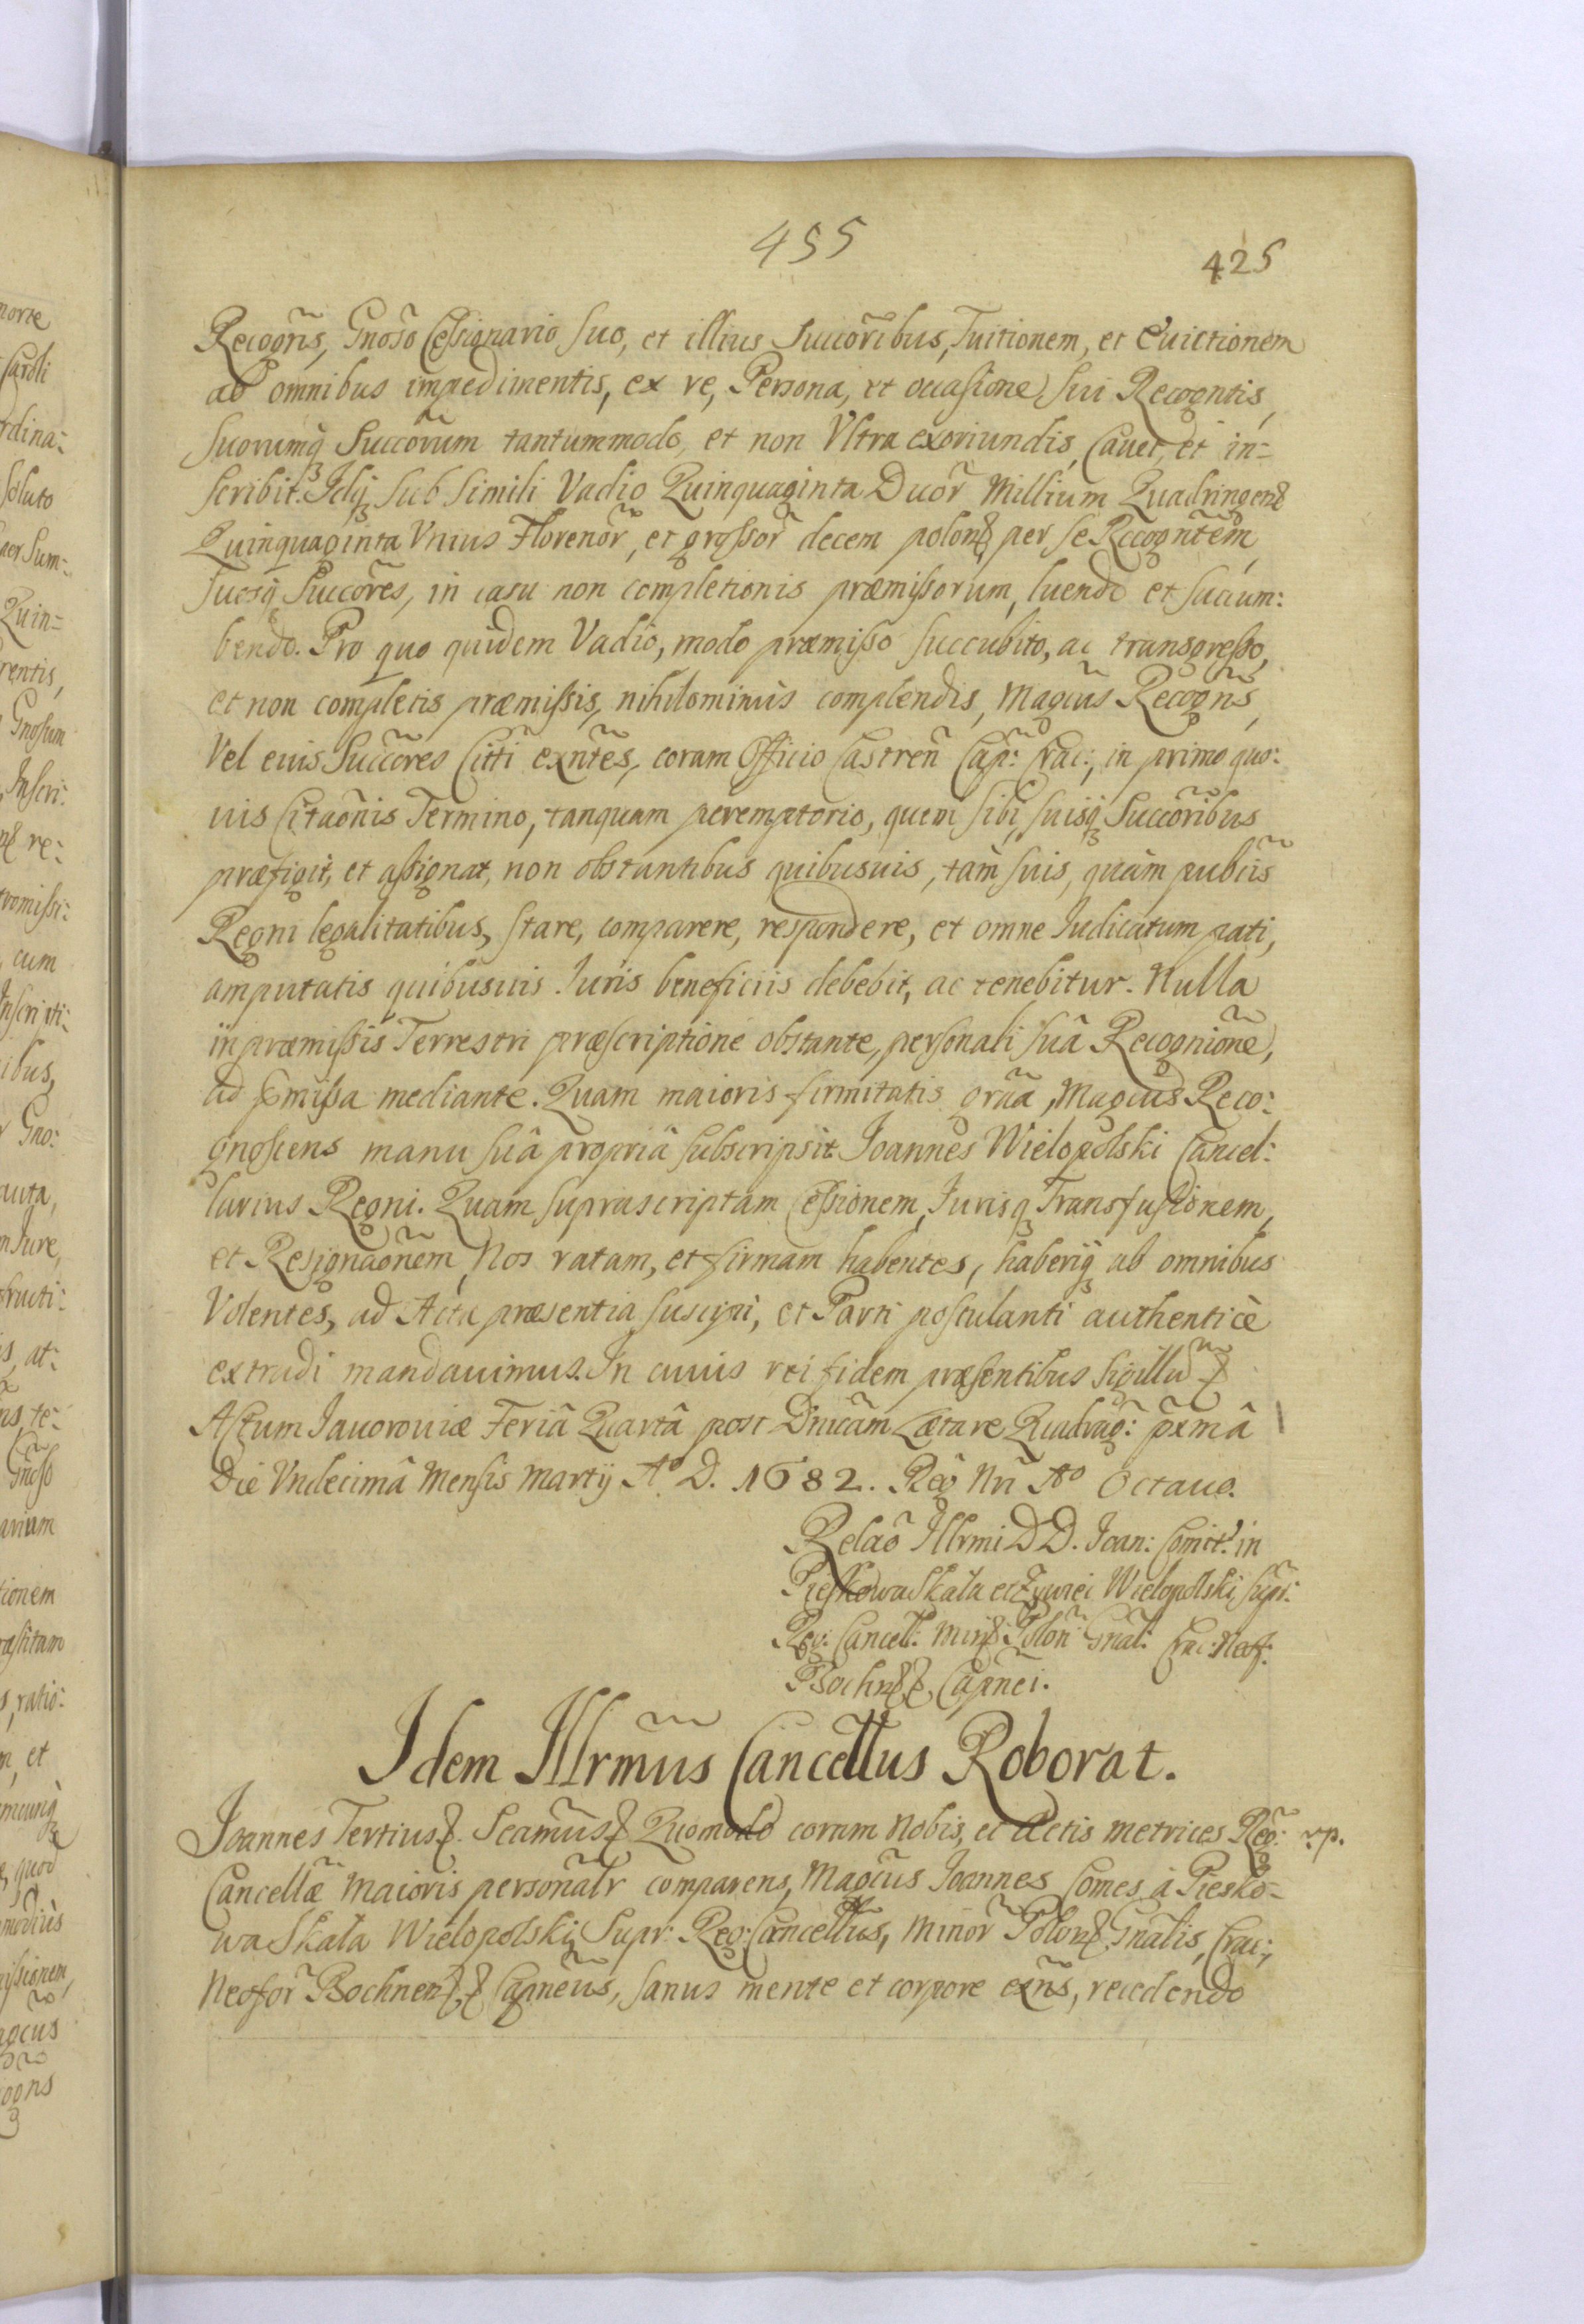 455
425
Recogñs, Gnoso Cessionario suo, et illius Succõribus, Tuitionem, et Euictionem
ab omnibus impedimentis, ex re, Persona, et occasione sui Recogntis,
suorumq́ Succõrum tantummodo, et non Vltra exoriundis, Cauet, et in=
scribit. Idq́ sub simili Vadio Quinquaginta Duor̃ Millium Quadringen
Quinquaginta Vnius Florenor̃, et grossor̃ decem polon per se Recogntem̃,
suosq́ Succões, in casu non completionis præmissorum, luendo et succum:
bendo. Pro quo quidem Vadio, modo præmisso succubito, ac transgresso,
et non completis præmissis, nihilominùs complendis, Magcus̃ Recogñs,
Vel eius Succõres Citti exñtes, coram Officio Castreñ Cap: Crac:, in primo quo:
uis Citaõnis Termino, tanquam peremptorio, quem sibi, suisq́ Succõribus
præfigit, et assignat, non obstantibus quibusuis, tàm suis, quàm publis̃
Regni legalitatibus, stare, comparere, respondere, et omne Iudicatum pati,
amputatis quibusuis Iuris beneficiis debebit, ac tenebitur. Nulla
in præmissis Terrestri præscriptione obstante, personali suâ Recognioñe,
ad p̃missa mediante. Quam maioris firmitatis grãa, Magcus̃ Reco:
gnoscens manu suâ propriâ subscripsit Joannes Wielopolski Cancel:
larius Regni. Quam suprascriptam Cessionem, Iurisq́ Transfusionem,
et Resignaõnem, Nos ratam, et firmam habentes, haberiq́ ab omnibus
Volentes, ad Acta præsentia suscipi, et Parti postulanti authenticè
extradi mandauimus. In cuius rei fidem præsentibus sigillũ
Actum Iauorouiæ Feriâ Quartâ post Dnicam̃ Lætare Quadrag: pxm̃â
Die Vndecimâ Mensis Martij Aº D. 1682. Reg̃ Nri Aº Octauo.
Relaõ Illrmi D D. Ioan: Comit: in
Pieskowa Skała et Zywiei Wielopolski, Supr:
Reg: Cancell: Min Polon̄ Gnãl: Crac: Neof:
Bochn Capnei.
Idem Illrm̃us Cancellus Roborat.
Joannes Tertius. Scam̃us Quomodo coram Nobis, et Actis Metrices Reg: rp.
Cancellæ Maioris personalr̃ comparens, Magcus̃ Joannes Comes à Piesko=
wa Skała Wielopolski, Supr: Reg: Cancellus, Minor̃ Polon Gnãlis, Crac:,
Neofor̃ Bochnen, Capneus̃, sanus mente et corpore exñs, recedendo